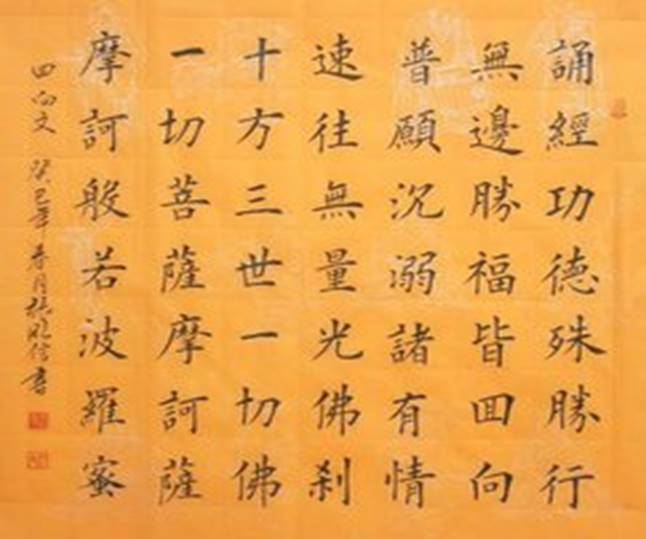 誦經功德殊勝行
無邊勝福皆回向
普願沉溺諸有情
速往無量光佛剎
十方三世一切佛
一切菩薩摩訶薩
摩訶般若波羅蜜
回向文 癸巳年春月 書